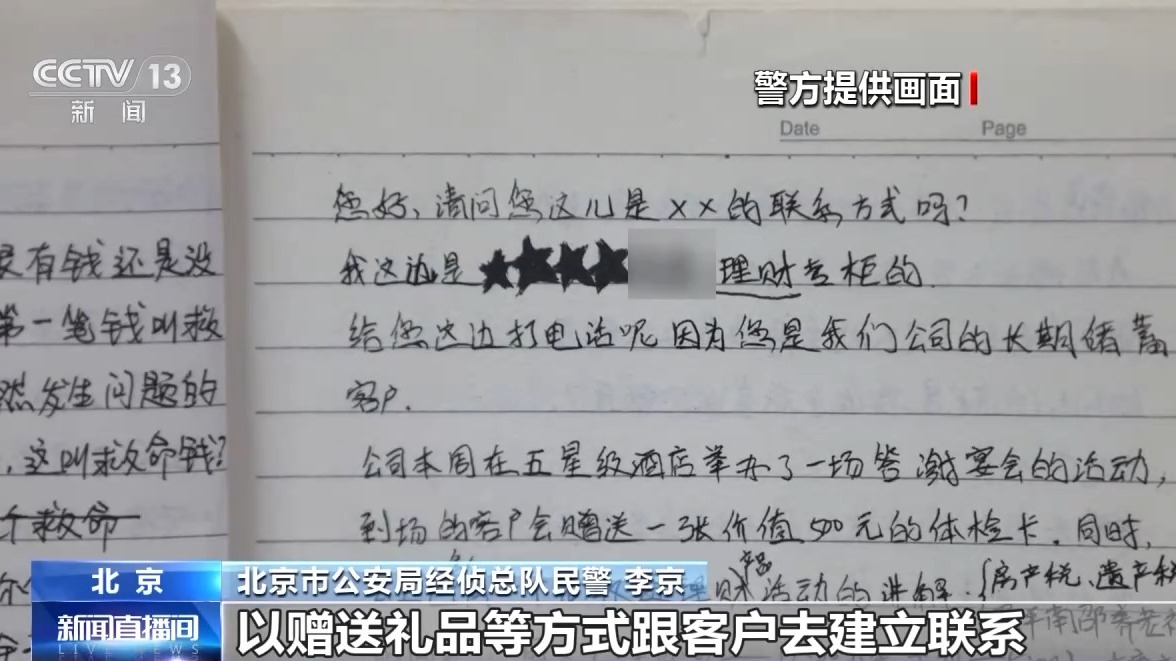 CCTV 13
新闻
警方提供画面
Date Page
有钱还是没
第一笔钱叫救
然发生问题的
，这叫救命钱？
个救命
您好、请问您这儿是××的联系方式吗？
我这边是★★★★ 理财专柜的.
给您这边打电话呢因为您是我们公司的长期储蓄
客户.
公司本周在五星级酒店举办了一场答谢宴会的活动，
到场的客户会赠送一张价值500元的体检卡.同时，
财产品活动的讲解.(房产税、遗产税
北京
北京市公安局经侦总队民警 李京
新闻直播间
LIVE NEWS
以赠送礼品等方式跟客户去建立联系